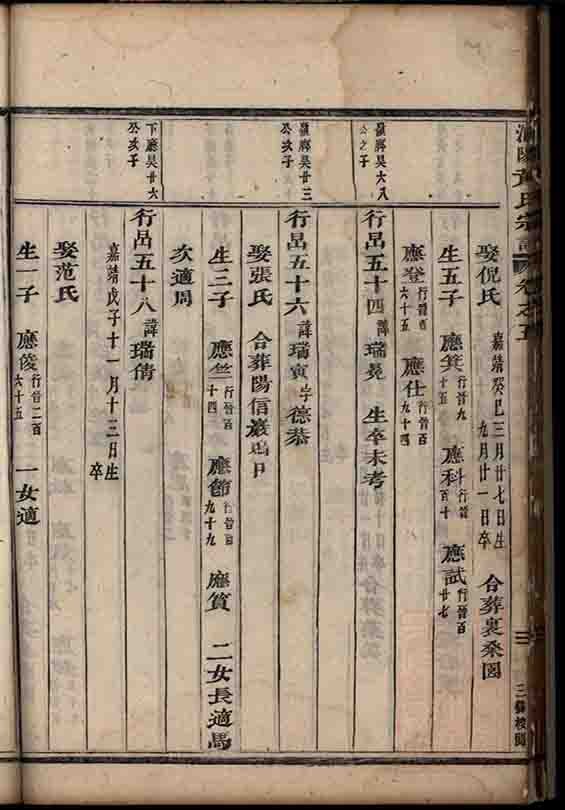 黃氏宗譜 卷之五
娶倪氏 嘉靖癸巳三月廿七日生 九月廿一日卒 合葬裏桑園
生五子 應箕 行晉九十五 應科 行晉百十 應試 行晉百廿七
應登 行晉百六十五 應仕 行晉百九十四
行昌五十四 諱瑞晃 生卒未考
公之子
行昌五十六 諱瑞寅 字德恭
昊廿三
公次子
娶張氏 合葬陽信
生三子 應竺 行晉百十四 應節 行晉百九十九 應質 二女長適馬
次適周
行昌五十八 諱瑞倩
下廳昊廿六
公次子
嘉靖戊子十一月十三日生
卒
娶范氏
生一子 應俊 行晉二百六十五 一女適